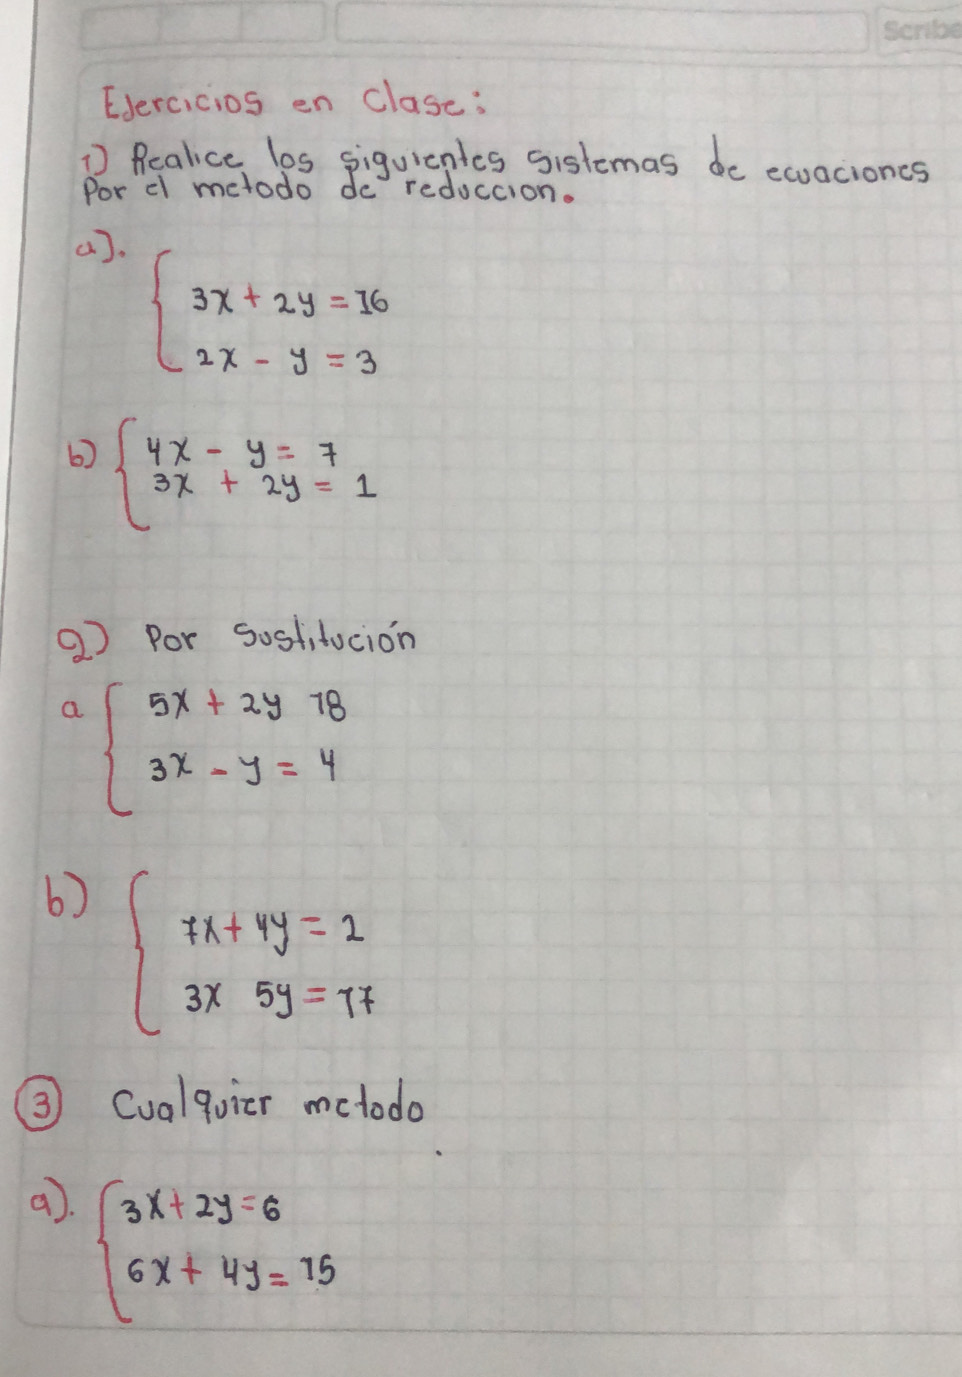 Scribe
Ejercicios en Clase:
1) Realice los siguientes sistemas de ecuaciones
Por el metodo de reduccion.
a).
3x + 2y = 16
2x - y = 3
b) 4x - y = 7
3x + 2y = 1
2) Por Sustitución
a 5x + 2y 18
3x - y = 4
b)
7x + 4y = 2
3x 5y = 17
3 Cualquier metodo
a). 3x + 2y = 6
6x + 4y = 15